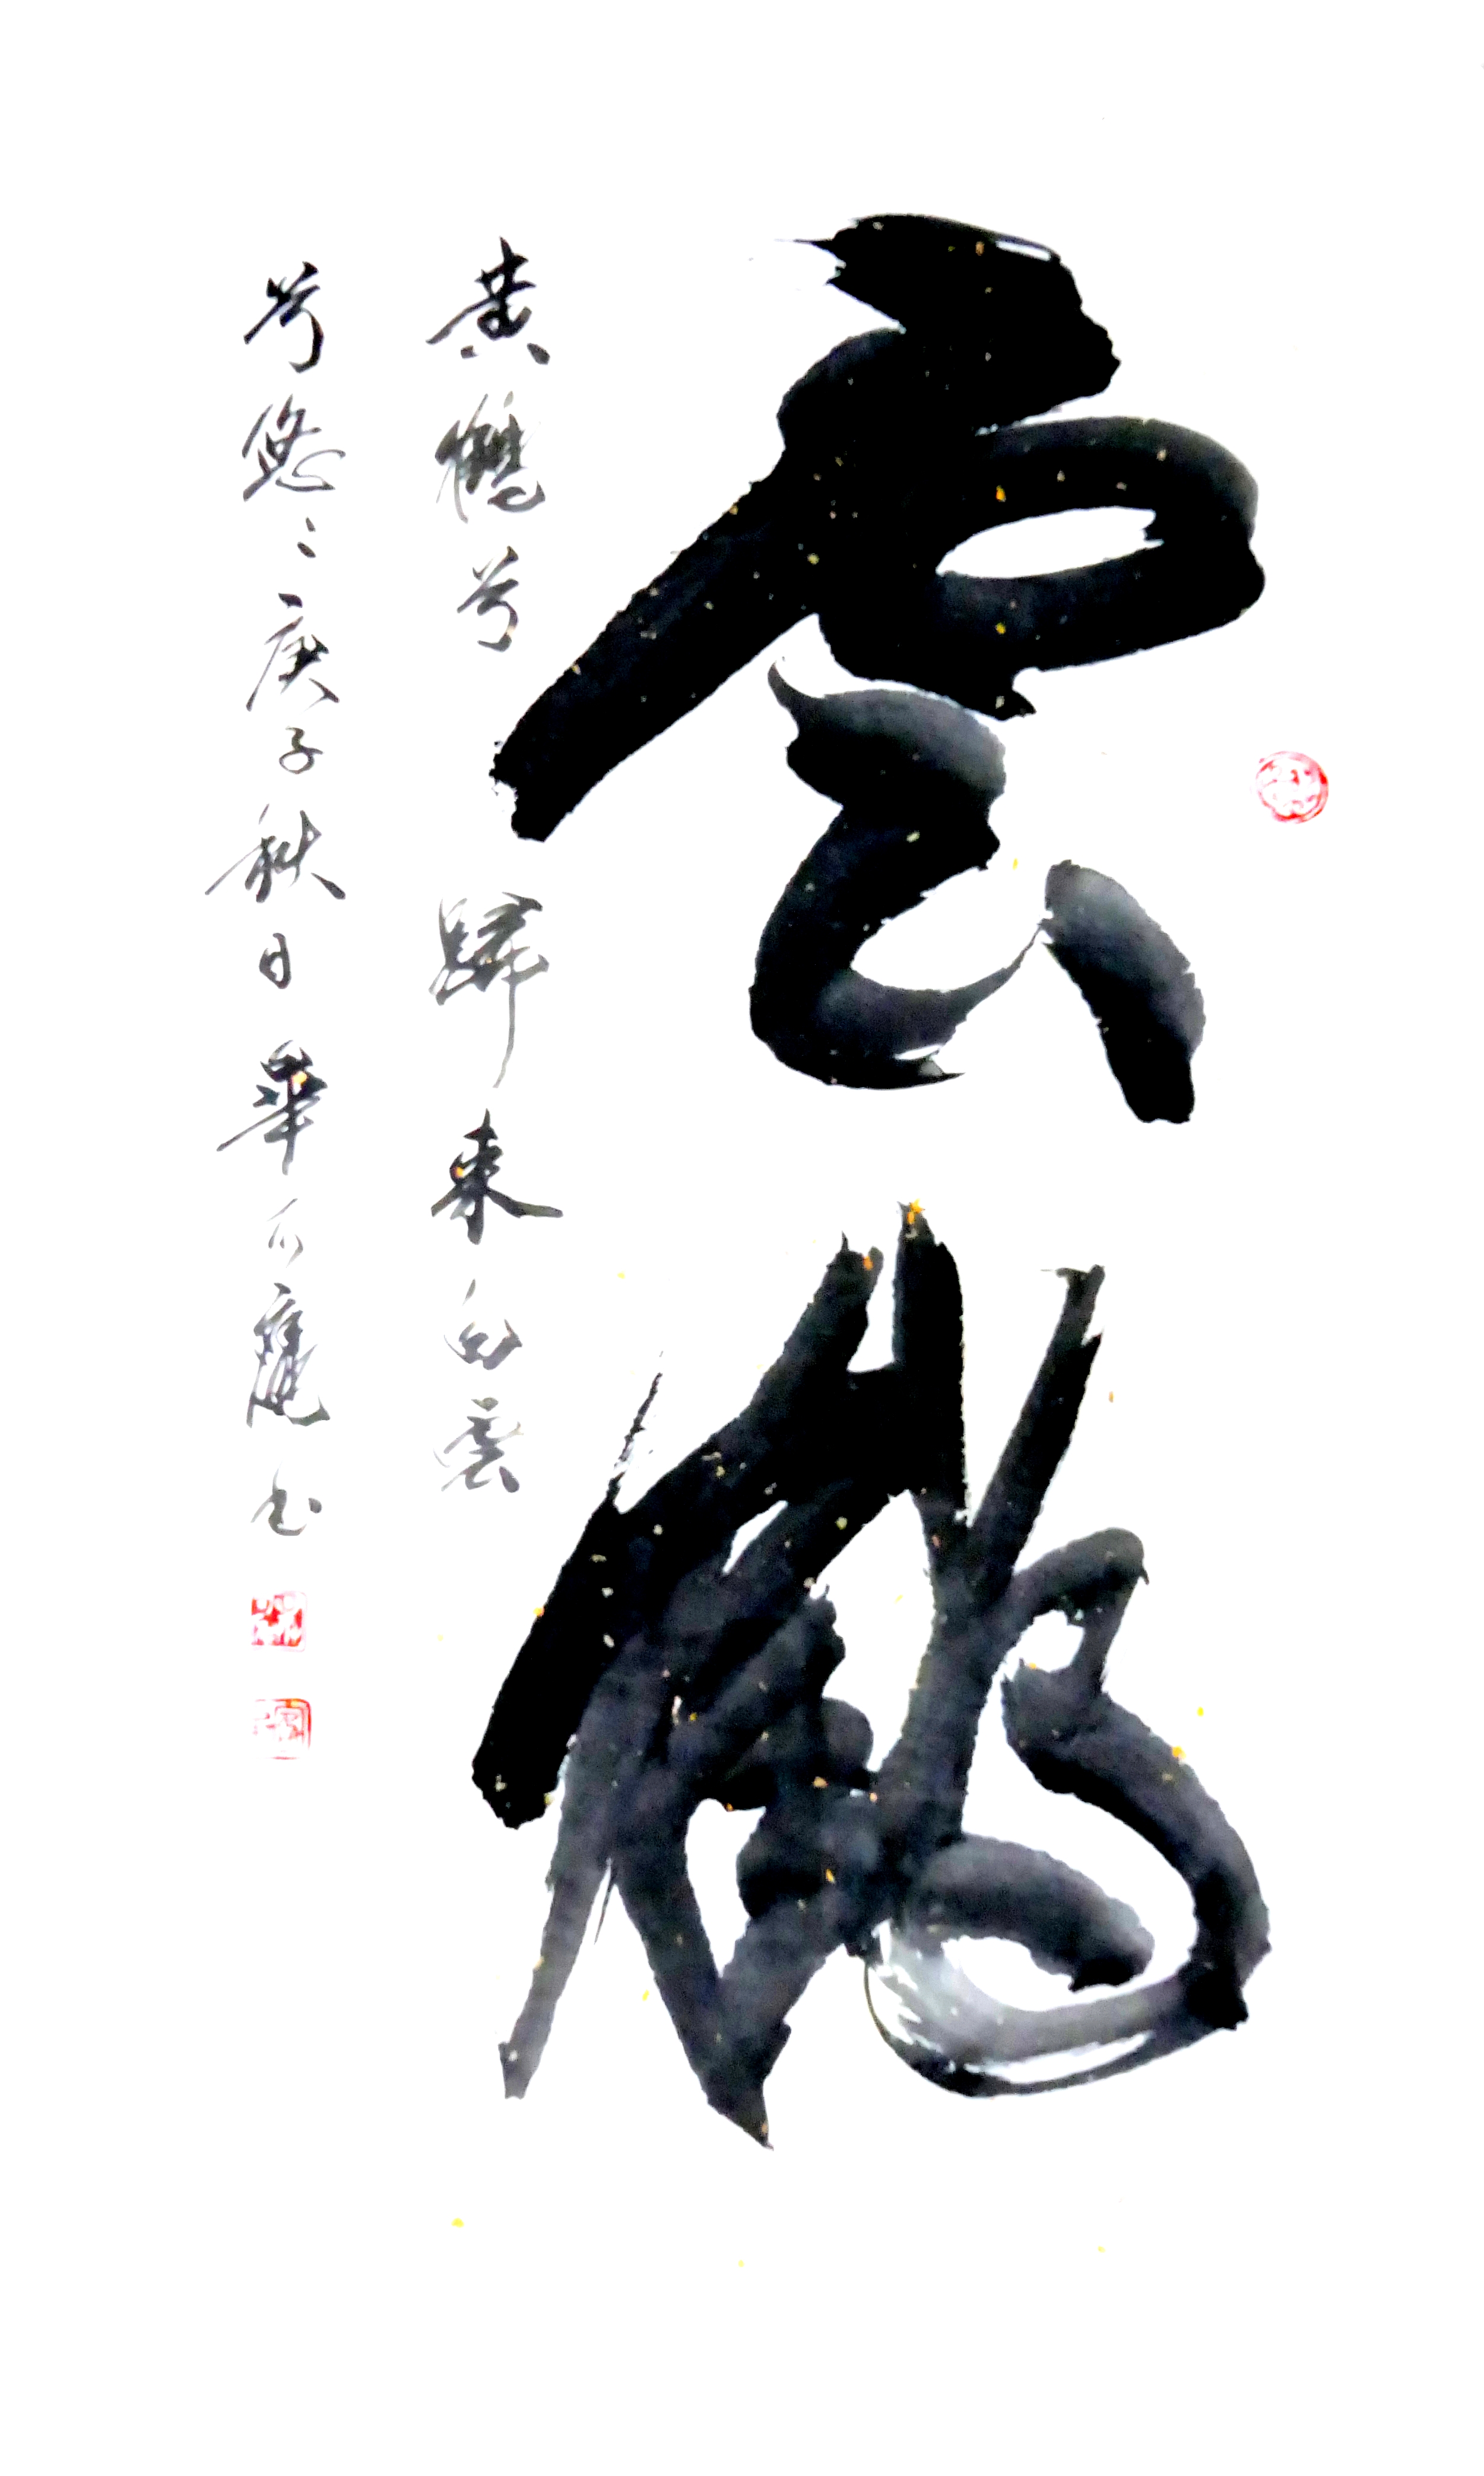 雲鶴
黄鶴兮 歸來白雲
兮悠〻庚子秋日華
書